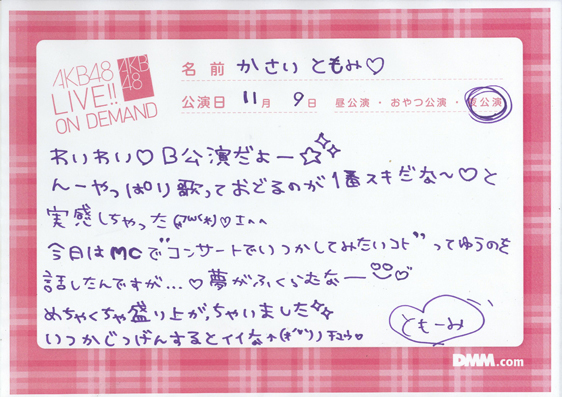 AKB48
LIVE!!
ON DEMAND
AKB
48
名前 かさい ともみ♡
公演日 11月 9日 昼公演・おやつ公演・夜公演
わいわい♡B公演だよー☆
んーやっぱり歌っておどるのが1番スキだな〜♡と
実感しちゃった ♡エへへ
今日はMCで"コンサートでいつかしてみたいコト"ってゆうのを
話したんですが...♡夢がふくらむなー
めちゃくちゃ盛り上がっちゃいました
いつかじつげんするとイイな チュウ♡
ともーみ
DMM.com